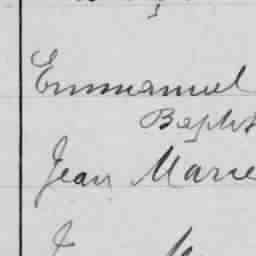 Emmanuel
Baptist
Jean Marie